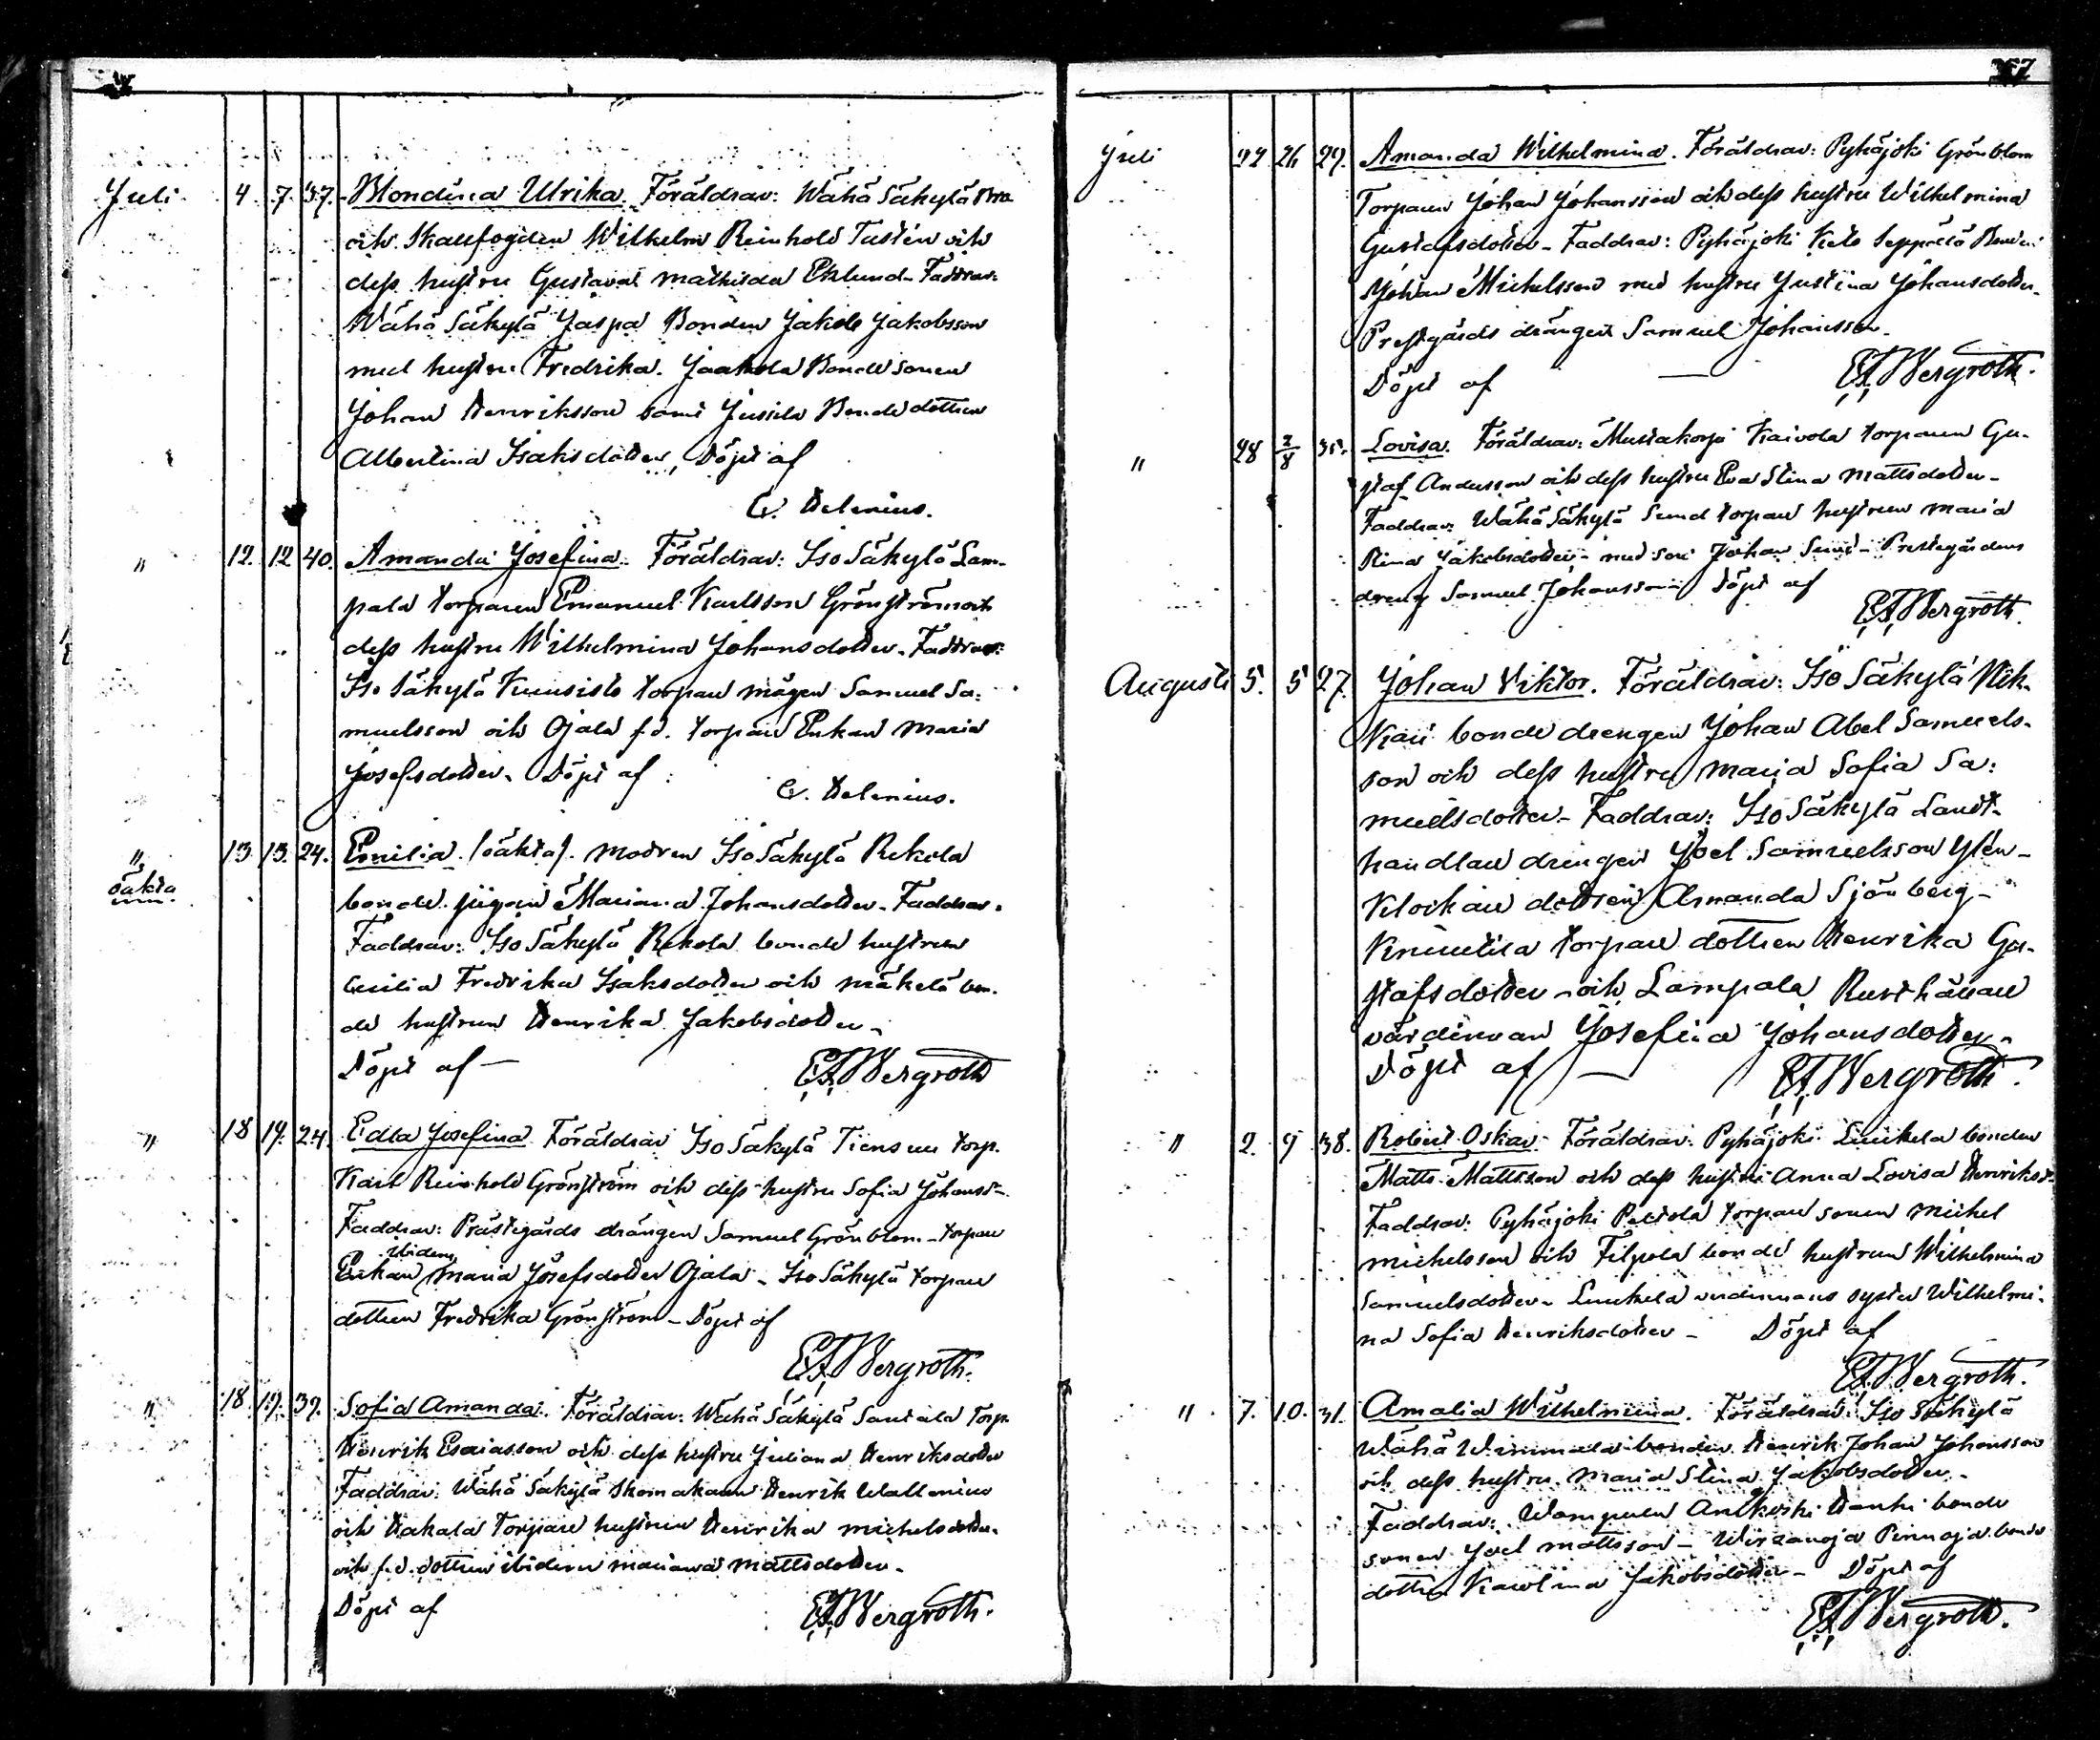 Juli 4. 7. 37. Blondina Ulrika. Föräldrar: Wähä Säkylä
och Skallfogden Wilhelm Reinhold Tustén och
dess hustru Gustava Mathilda Eklund. Faddrar:
Wähä Säkylä Jaspa Bonden Jakob Jakobsson
med hustru Fredrika. Jaakola Bondesonen
Johan Henriksson samt Jussila Bondedottren
Albertina Isaksdotter, Döpt af
C. Helenius.
" 12. 12 40. Amanda Josefina. Föräldrar: Iso Säkylä Lam-
pala torparen Emanuel Karlsson Grönström och
dess hustru Wilhelmina Johansdotter. Faddrar:
Iso Säkylä Kuusisto torpare mågen Samuel Sa-
muelsson och Ojala f.d. torpare Enkan Maria
Josefsdotter. Döpt af
C. Helenius.
" 13. 13. 24. Emilia. (oäkta). modren Iso Säkylä Rekola
oäkta
bonde pigan Mariana Johansdotter. Faddrar.
Faddrar: Iso Säkylä Rekola bonde hustrun
Cecilia Fredrika Isaksdotter och Mäkelä bon-
de hustrun Henrika Jakobsdotter.
Döpt af — EF Bergroth
" 18 19. 24. Edla Josefina Föräldrar Iso Säkylä Tiensuu torp.
Karl Reinhold Grönström och dess hustru Sofia Johansd-
Faddrar: Prästegårds drängen Samuel Grönblom - torpare
ibidem
Enkan Maria Josefsdotter Ojala - Iso Säkylä torpare
dottren Fredrika Grönström - Döpt af
EF Bergroth.
" 18. 19. 39. Sofia Amanda. Föräldrar: Wähä Säkylä Santala Torp.
Henrik Esaiasson och dess hustru Juliana Henriksdotter
Faddrar. Wähä Säkylä Skomakaren Henrik Wallenius
och Hakala Torpare hustrun Henrika Michelsdotter.
och f.d. dottren ibidem Mariana Mattsdotter.
Döpt af EF Bergroth.
57
Juli 22 26 29. Amanda Wilhelmina. Föräldrar: Pyhäjoki Grönblom
Torparen Johan Johansson och dess hustru Wilhelmina
Gustafsdotter - Faddrar: Pyhäjoki Seppälä Bonden
Johan Michelsson med hustru Justina Johansdotter.
Prestgårds drängen Samuel Johansson.
Döpt af — EF Bergroth.
" 28 2/8 35. Lovisa. Föräldrar: Mustakorpi Kaivola torparen Gu-
staf Andersson och dess hustru Eva Stina Mattsdotter.
Faddrar: Wähä Säkylä Sund torpare hustrun Maria
Stina Jakobsdotter - med son Johan Sund - Prestegårdens
dreng Samuel Johansson Döpt af
EF Bergroth.
Augusti 5. 5 27. Johan Viktor. Föräldrar: Iso Säkylä
bonde drengen Johan Abel Samuels-
son och dess hustru Maria Sofia Sa-
muelsdotter - Faddrar: Iso Säkylä Landt-
handlare drengen Joel Samuelsson Ylén -
Klockare dottren Amanda Sjöberg -
torpare dottren Henrika Gu-
stafsdotter - och Lampala Rusthållare
värdinnan Josefina Johansdotter.
Döpt af — EF Bergroth.
" 2. 9 38. Robert Oskar. Föräldrar: Pyhäjoki Luukela bonden
Matts Mattsson och dess hustru Anna Lovisa Henriksd.
Faddrar: Pyhäjoki torpare sonen Michel
Michelsson och Filpola bonde hustrun Wilhelmina
Samuelsdotter - Luukela verdinnans syster Wilhelmi-
na Sofia Henriksdotter - Döpt af
EF Bergroth.
" 7. 10. 31. Amalia Wilhelmina. Föräldrar: Iso Säkylä
Wähä Wimmala bonden Henrik Johan Johansson
och dess hustru Maria Stina Jakobsdotter.
Faddrar: Wampula Antkoski Hanhi bonde
sonen Joel Mattsson - Wirzanoja Pinnoja bonde
dotter Karolina Jakobsdotter - Döpt af
EF Bergroth.